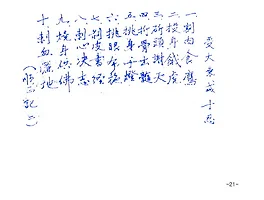 受大乘戒十忍
一割肉食鷹
二投身餓虎
三斫頭謝天
四折骨出髓
五挑身千燈
六挑眼布施
七剝皮書經
八刺心決志
九燒身供佛
十刺血灑地
(順正記三)
-21-